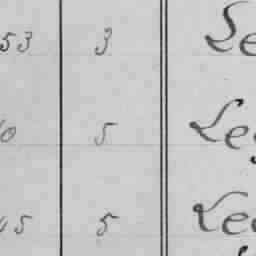 53 3 Le
0 5 Leo
45 5 Lee